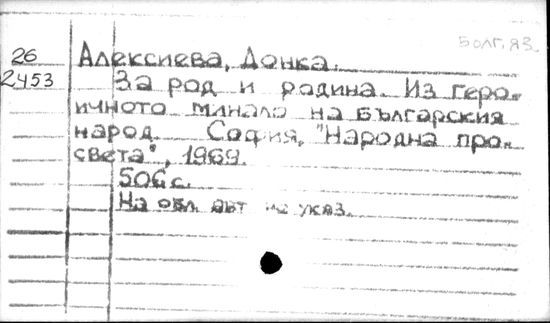 Болг.яз.
26
2453
Алексиева, Донка.
За род и родина. Из геро-
ичното минало на Българския
народ. София, "Народна про-
света", 1969.
506 с.
На обл. авт. не указ.